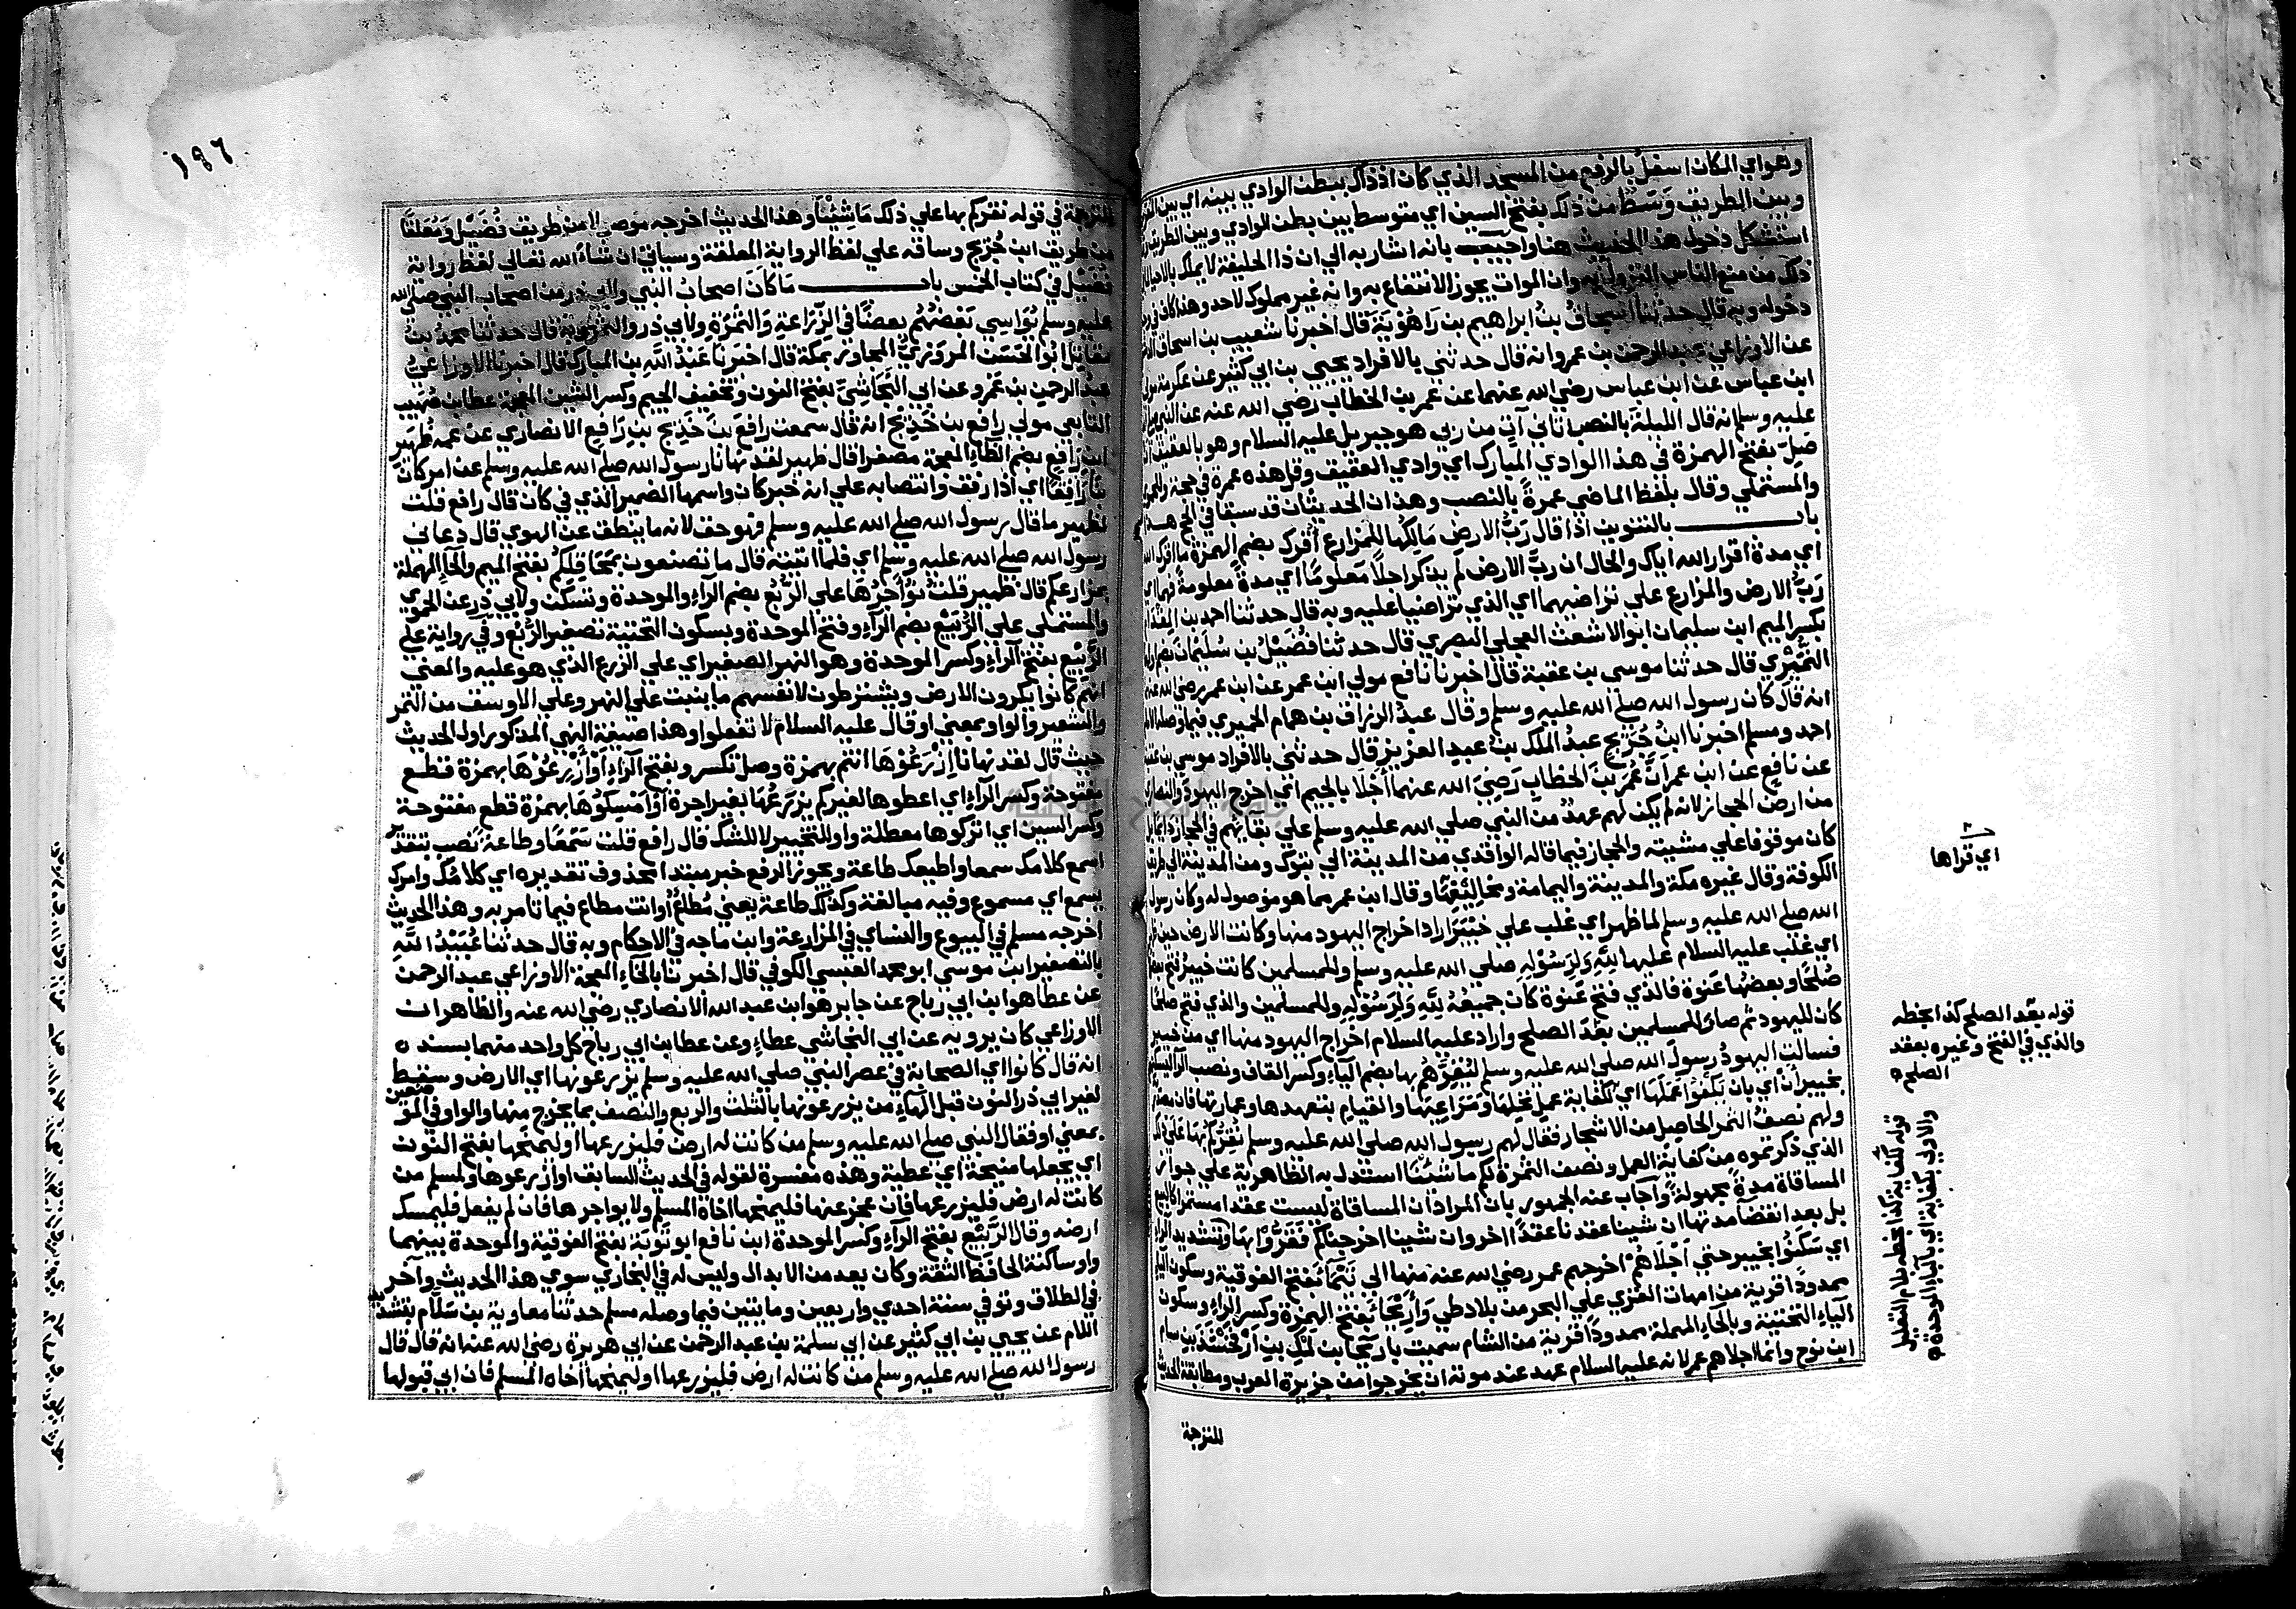 وهو اي المكان اسفل بالرفع من المسجد الذي كان اذ ذاك ببطن الوادي بينه اي بين
وبين الطريق وَسَطٌ من ذلك بفتح السين اي متوسط بين بطن الوادي وبين الطريق
استشكل دخول هذا الحديث هنا واجيب بانه اشار به الي ان ذا الحليفة لا يملك بالاحيا
ذلك من منع الناس النزول به وان الموات يجوز الانتفاع به وانه غير مملوك لاحد وهذا كاف في
دخوله وبه قال حدثنا اسحاق بن ابراهيم بن راهُوْيَة قال اخبرنا شعيب بن اسحاق
عن الاوزاعي عبد الرحمن بن عمرو انه قال حدثني بالافراد يحيي بن ابي كثير عن عكرمة مولي
ابن عباس عن ابن عباس رضي الله عنهما عن عمر بن الخطاب رضي الله عنه عن النبي صلي
عليه وسلم انه قال الليلةَ بالنصب اتاني آتٍ من ربي هو جبريل عليه السلام وهو بالعقيق ان
صَلّ بفتح الهمزة في هذا الوادي المبارك اي وادي العقيق وقل هذه عمرة في حجة
والمستملي وقال بلفظ الماضي عمرةً بالنصب وهذان الحديثان قد سبقا في الحج هـ
باب بالتنوين اذا قال رَبُّ الارض مالِكُها للمزارع أُقِرُّك بضم الهمزة ما اقرك الله
اي مدة اقرار الله اياك والحال ان ربَّ الارض لم يذكر اجلا مَعلومًا اي مدةً معلومةً فهما اي
رَبُّ الارض والمزارع علي تراضيهما اي الذي تراضيا عليه وبه قال حدثنا احمد بن المِقْدَام
بكسر الميم ابن سليمان ابو الاشعث العجلي البصري قال حدثنا فُضَيْلُ بن سُلَيْمَان بضم
النُّمَيْري قال حدثنا موسي بن عقبة قال اخبرنا نافع مولي ابن عمر عن ابن عمر رضي الله عنهما
انه قال كان رسول الله صلي الله عليه وسلم وقال عبدُ الرزاق بن همام الحميري فيما وصله
احمد ومسلم اخبرنا ابنُ جُرَيْج عبدُ الملك بنُ عبد العزيز قال حدثني بالافراد موسي بن عقبة
عن نافع عن ابن عمر أنَّ عُمَرَ بنَ الخطاب رَضِيَ الله عنهما أجْلَا بالجيم اي اخرج اليهودَ والنصارى
من ارض الحجاز لانه لم يكن لهم عهدٌ من النبي صلي الله عليه وسلم علي بقايهم في الحجاز دائما بل
كان موقوفا علي مشيئته والحجاز فيما قاله الواقدي من المدينة الي تبوك ومن المدينة الي طريق
الكوفة وقال غيره مكة والمدينة واليمامة ومخاليفها وقال ابن عمر مما هو موصول له وكان رسول
الله صلي الله عليه وسلم لما ظهر اي غلب علي خَيْبَرَ اراد اخراج اليهود منها وكانت الارض حين
اي غلب عليه السلام عليها لِلّهِ وَلِرَسُوْلِهِ صلي الله عليه وسلم وللمسلمين كانت خيبر فتح بعضها
صُلحًا وبعضها عَنوة فالذي فتح عَنوة كان جميعُهُ لِلّهِ وَلِرَسُوْلِهِ وللمسلمين والذي فتح صلحا
كان لليهود ثم صار للمسلمين بَعْدَ الصلح واراد عليه السلام اخراج اليهود منها اي من خيبر
فسالت اليهودُ رسولَ الله صلي الله عليه وسلم لِيُقِرَّهُمْ بها بضم الياء وكسر القاف ونصب الرا
بخيبر أنْ اي بان يَكفُوا عَمَلَهَا اي كفَاية عمل نخلها ومَزَارعها والقيام بتعهدها وعمارتها
ولهم نصفُ الثمر الحاصل من الاشجار فقال لهم رسول الله صلي الله عليه وسلم نُقِرُّكُمْ بها عليَ
الذي ذكرتموه من كفاية العمل ونصف الثمرة لكم ما شئنا استدل به الظاهرية علي جواز
المساقاة مدةً مجهولةً واجاب عنه الجمهور بان المراد ان المساقاة ليست عقدا مستمرا كالبيع
بل بعد انقضا مدتها ان شينا عقدنا عقدًا اخر وان شينا اخرجناكم فَقَرُّوْا بها بتشديد الرا
اي سَكَنُوا بخيبر حتي أجْلَاهُمْ اخرجهم عمر رضي الله عنه منها الي تَيْمَاءَ بفتح الفوقية وسكون
ممدودًا قرية من امهات القري علي البحر من بلاد طي وَأَرِيْحَاءَ بفتح الهمزة وكسر الراء وسكون
الياء التحتية وبالحاء المهملة ممدودًا قرية من الشام سميت باريحا بن لَمَك بن أرْفَخْشَذ بن سام
ابن نوح وانما اجلاهم عمر لانه عليه السلام عهد عند موته ان يخرجوا من جزيرة العرب ومطابقة الحديث
للترجمة
اي قراها
قوله بعد الصلح كذا بخطه
والذي في الفتح وغيره بعقد
الصلح ه
قوله كفاية كذا بخطه بلام التعليل
والاولي بكفاية اي بالباء الموحدة ه
١٩٦
للترجمة في قوله نقركم بها علي ذلك مَا شِئْنَا وهذا الحديث اخرجه موصولا من طريق فُضَيْل وَمُعَلَّقًا
من طريق ابن جُرَيْج وساقه علي لفظ الرواية المعلقة وسياتي ان شاء الله تعالي لفظ رواية
فضيل في كتاب الخمس باب مَا كَانَ اصحابُ النبي ولابي ذر من اصحاب النبي صلي الله
عليه وسلم يُوَاسِي بَعْضُهُمْ بعضًا في الزِّرَاعةِ وَالثَّمَرَةِ ولابي ذر والثمر وبه قال حدثنا محمد بن
مقاتل ابو الحَسَن المروزيُّ المجاور بمكة قال اخبرَنا عَبْدُ اللهِ بن المبارك قال اخبرنا الاوزاعيُّ
عبد الرحمن بن عَمْرو عن ابي النَّجَاشِيّ بفتح النون وتخفيف الجيم وكسر الشين المعجمة عطا بن صُهَيب
التابعي مولي رافع بن خَدِيْج انه قال سمعت رافعَ بنَ خَدِيْج بن رَافِعٍ الانصاري عن عمه ظُهَيْر
ابن رَافِعٍ بضم الظاء المعجمة مصغرا قال ظهير لقد نهانا رسول الله صلي الله عليه وسلم عن امر كان
بنا رَافِقًا اي ذا رفق وانتصابه علي انه خبر كان واسمها الضمير الذي في كان قال رافع قلت
لظهير ما قال رسول الله صلي الله عليه وسلم فهو حق لانه ما ينطق عن الهوي قال دعاني
رسول الله صلي الله عليه وسلم اي فلما اتيته قال ما تصنعون بمَحَاقِلكُمْ بفتح الميم والحاء المهملة
بمزارعكم قال ظهير قلتُ نُؤَاجِرُهَا علي الرُّبُع بضم الراء والموحدة وتسكن ولابي ذر عن الحموي
والمستملي علي الرُّبَيْع بضم الراء وفتح الموحدة وبسكون التحتية تصغير الرُّبْع وفي رواية علي
الرَّبِيْع بفتح الراء وكسر الموحدة وهو النهر الصغير اي علي الزرع الذي هو عليه والمعني
انهم كانوا يكرون الارض ويشترطون لانفسهم ما ينبت علي النهر وعلي الاوسق من التمر
والشعير والواو بمعني او قال عليه السلام لا تفعلوا وهذا صيغة النهي المذكور اول الحديث
حيث قال لقد نهانا اِزْرَعُوْهَا انتم بهمزة وصل تكسر وبفتح الراء أوْ أَزْرِعُوْهَا بهمزة قطع
مفتوحة وكسر الراء اي اعطوها لغيركم يزرعُها بغير اجرة أوْ أَمْسِكُوْهَا بهمزة قطع مفتوحة
وكسر السين اي اتركوها معطلة واو للتخيير لا للشك قال رافع قلت سَمْعًا وطاعةً نصب بتقدير
اسمع كلامك سمعا واطيعك طاعة ويجوز الرفع خبر مبتدا محذوف تقديره اي كلامُك وامرك
يسمع اي مسموع وفيه مبالغة وكذلك طاعة يعني مُطَاعٌ او انت مطاع فيما تامر به وهذا الحديث
اخرجه مسلم في البيوع والنساي في المزارعة وابن ماجه في الاحكام وبه قال حدثنا عُبَيْدُ اللهِ
بالتصغير ابن موسي ابو محمد العبسي الكوفي قال اخبرنا بالخاء المعجمة الاوزاعي عبد الرحمن
عن عطا هو ابن ابي رباح عن جابر هو ابن عبد الله الانصاري رضي الله عنه والظاهر ان
الاوزاعي كان يرويه عن ابي النجاشي عطاء وعن عطا بن ابي رباح كل واحد منهما بسنده ه
انه قال كانوا اي الصحابة في عصر النبي صلي الله عليه وسلم يزرعونها اي الارض وسقط
لغير ابي ذر النون قبل الهاء من يزرعونها بالثلث والربع والنصف بما يخرج منها والواو في الموضعين
بمعني او فقال النبي صلي الله عليه وسلم من كانت له ارض فليزرعها او ليمنحها بفتح النون
اي يجعلها منيحة اي عطية وهذه مفسرة لقوله في الحديث السابق او ازرعوها ولمسلم من
كانت له ارض فليزرعها فان عجز عنها فليمنحها اخاه المسلم ولا يواجرها فان لم يفعل فليمسك
ارضه وقال الرَّبِيْعُ بفتح الراء وكسر الموحدة ابن نافع ابو تَوْبَة بفتح الفوقية والموحدة بينهما
واو ساكنة الحافظ الثقة وكان يعد من الابدال وليس له في البخاري سوي هذا الحديث وآخر
في الطلاق وتوفي سنة احدي واربعين ومايتين فيما وصله مسلم حدثنا معاوية بن سَلَّام بتشديد
اللام عن يحيي بن ابي كثير عن ابي سلمة بن عبد الرحمن عن ابي هريرة رضي الله عنه انه قال قال
رسول الله صلي الله عليه وسلم من كانت له ارض فليزرعها او ليمنحها اخاه المسلم فان ابي قبولها